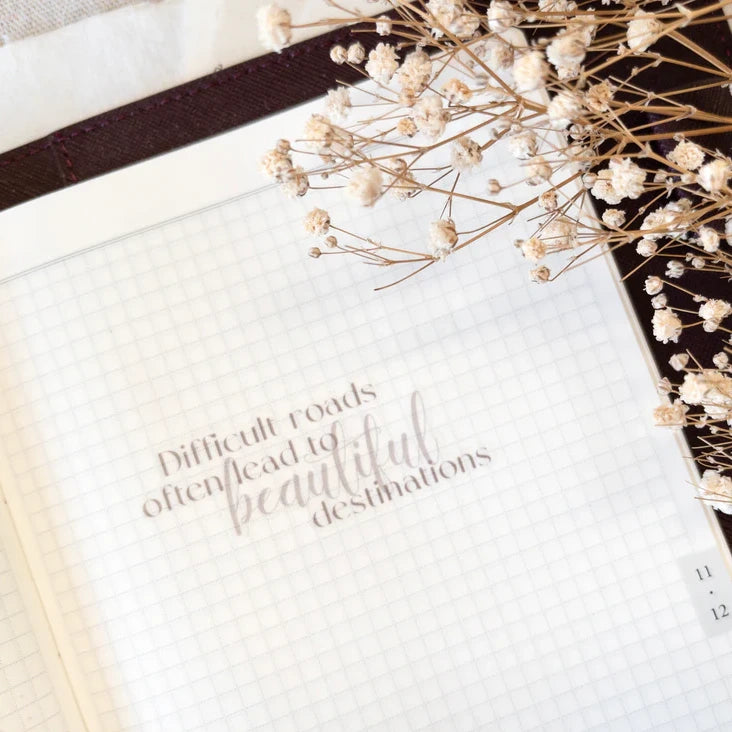 Difficult roads
often lead to
beautiful
destinations
11
·
12